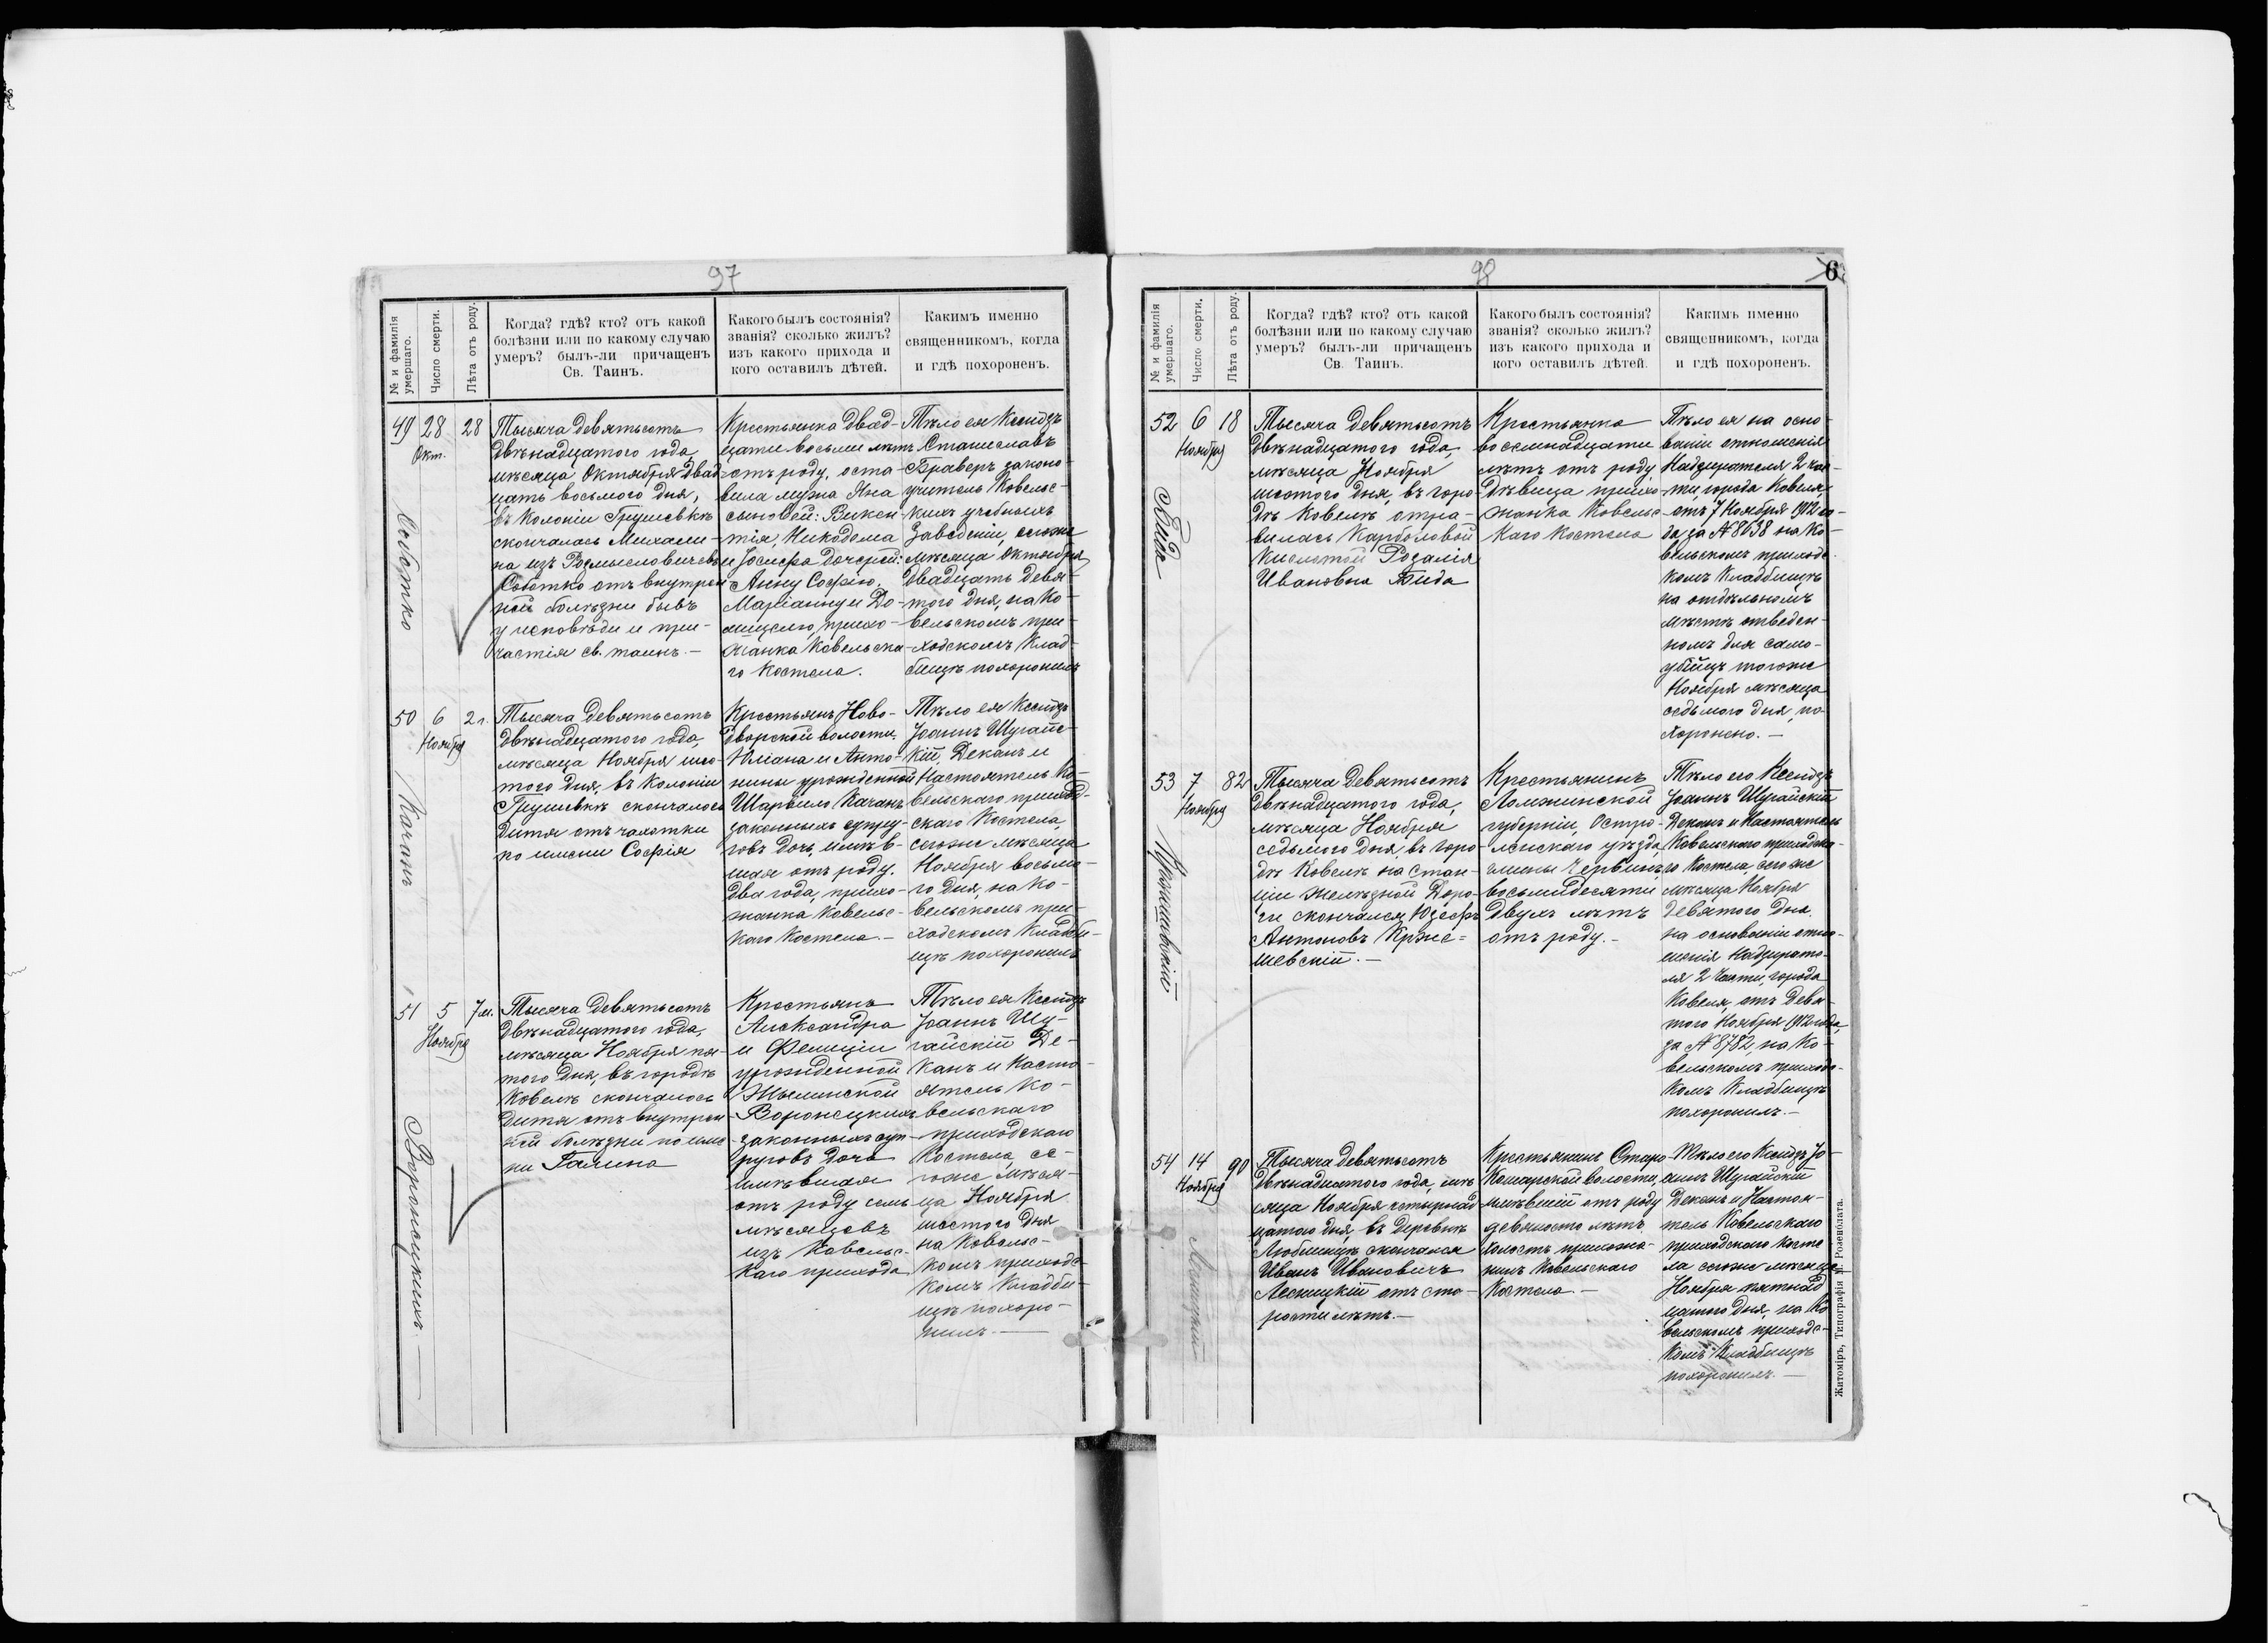 97
№ и фамилія умершаго.
Число смерти.
Лѣта отъ роду.
Когда? гдѣ? кто? отъ какой
болѣзни или по какому случаю
умеръ? былъ-ли причащенъ
Св. Таинъ.
Какого былъ состоянія?
званія? сколько жилъ?
изъ какого прихода и
кого оставилъ дѣтей.
Какимъ именно
священникомъ, когда
и гдѣ похороненъ.
49
28
Окт.
28
Тысяча девятьсотъ
двѣнадцатого года,
мѣсяца Октября двад
цать восьмого дня,
въ колоніи Грушевкѣ
скончалась Михали-
на изъ
отъ внутрен
ней болѣзни бывъ
у исповѣди и при-
частія св. таинъ.-
Крестьянка двад-
цати восьми лѣтъ
отъ роду, оста-
вила мужа Яна
сыновей: Викен-
тія, Никодема
и Іосифа дочерей:
Анну Софію,
Маріанну и До-
мицелю, прихо-
жанка Ковельска-
го Костела.
Тѣло ея Ксендзъ
Станиславъ
Браверъ законо-
учитель Ковельс-
кихъ учебныхъ
Заведеній, сегоже
мѣсяца Октября
двадцать девя-
того дня, на Ко-
вельскомъ при-
ходскомъ Клад-
бищѣ похоронилъ
50
6
Ноября
2 г.
Качанъ
Тысяча девятьсотъ
двѣнадцатого года,
мѣсяца Ноября шес-
того дня, въ колоніи
Грушевкѣ скончалось
дитя отъ чахотки
по имени Софія
Крестьянъ Ново-
дворской волости,
Юліана и Анто-
нины урожденной
Шарвило Качанъ
законныхъ супру-
говъ дочь, имѣв-
шая отъ роду.
два года, прихо-
жанка Ковельс-
каго Костела.-
Тѣло ея Ксендзъ
Іоаннъ Шугайс-
кій, Деканъ и
Настоятель Ко-
вельскаго приход-
скаго Костела,
сегоже мѣсяца
Ноября восьмо-
го дня, на Ко-
вельскомъ при-
ходскомъ Кладби-
щѣ похоронилъ
51
5
Ноября
7 м.
Воронецкихъ
Тысяча девятьсотъ
двѣнадцатого года,
мѣсяца Ноября пя-
того дня, въ городѣ
Ковелѣ скончалось
дитя отъ внутрен
ней болѣзни по име
ни Галина
Крестьянъ
Александра
и Фелиціи
урожденной
Воронецкихъ
законныхъ суп-
руговъ дочь
имѣвшая
отъ роду семь
мѣсяцевъ
изъ Ковельс-
каго прихода
Тѣло ея Ксендзъ
Іоаннъ Шу-
гайскій Де-
канъ и Насто-
ятель Ко-
вельскаго
приходскаго
Костела, се-
гоже мѣся-
ца Ноября
шестого дня
на Ковельс-
комъ приходс-
комъ Кладби-
щѣ похоро-
нилъ.-
98
6
№ и фамилія умершаго.
Число смерти.
Лѣта отъ роду.
Когда? гдѣ? кто? отъ какой
болѣзни или по какому случаю
умеръ? былъ-ли причащенъ
Св. Таинъ.
Какого былъ состоянія?
званія? сколько жилъ?
изъ какого прихода и
кого оставилъ дѣтей.
Какимъ именно
священникомъ, когда
и гдѣ похороненъ.
52
6
Ноября
18
Бида
Тысяча девятьсотъ
двѣнадцатого года,
мѣсяца Ноября
шестого дня, въ горо-
дѣ Ковелѣ отра-
вилась Карболовой
кислотой Розалія
Ивановна Бида
Крестьянка
восемнадцати
лѣтъ отъ роду,
дѣвица прихо-
жанка Ковельс-
каго Костела
Тѣло ея на осно-
ваніи отношенія
Надзирателя 2 час-
ти, города Ковеля,
отъ 7 Ноября 1912 го-
да за № 8638 на Ко-
вельскомъ приходс-
комъ Кладбищѣ
на отдѣльномъ
мѣстѣ отведен-
номъ для само-
убійцъ тогоже
Ноября мѣсяца
седьмого дня, по-
хоронено.-
53
7
Ноября
82
Тысяча девятьсотъ
двѣнадцатого года,
мѣсяца Ноября
седьмого дня, въ горо-
дѣ Ковелѣ на стан-
ціи желѣзной Доро-
ги скончался Юзефъ
Антоновъ Крже-
шевскій.-
Крестьянинъ
Ломжинской
губерніи, Остро-
ленскаго уѣзда,
гмины Червинъ,
восьмидесяти
двухъ лѣтъ
отъ роду.-
Тѣло его Ксендзъ
Іоаннъ Шугайскій
Деканъ и Настоятель
Ковельскаго приходска-
го Костела, сегоже
мѣсяца Ноября
девятого дня.
на основаніи отно-
шенія Надзирате-
ля 2 Части, города
Ковеля, отъ девя-
того Ноября 1912 года,
за № 8782, на Ко-
вельскомъ приходс-
комъ Кладбищѣ
похоронилъ.-
54
14
Ноября
90
Лесницкій
Тысяча девятьсотъ
двѣнадцатого года, мѣ
сяца Ноября четырнад
цатого дня, въ деревнѣ
Люблинцѣ скончался
Иванъ Ивановичъ
Лесницкій отъ ста-
рости лѣтъ.-
Крестьянинъ Старо-
Кошарской волости,
имѣвшій отъ роду
девяносто лѣтъ
холостъ прихожа-
нинъ Ковельскаго
Костела.-
Тѣло его Ксендзъ Іо-
аннъ Шугайскій
Деканъ и Настоя-
тель Ковельскаго
приходскаго Косте
ла сегоже мѣсяца
Ноября пятнад
цатого дня, на Ко
вельскомъ приходс-
комъ Кладбищѣ
похоронилъ.-
Житоміръ, Типографія М. Розенблата.